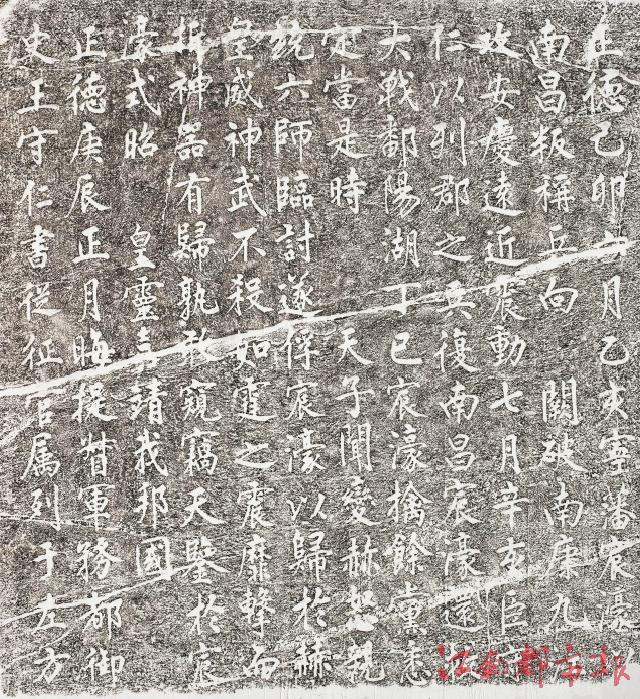 正德己卯六月乙亥寧藩宸濠
南昌叛稱兵向 闕破南康九
攻安慶遠近震動七月辛亥臣守
仁以列郡之兵復南昌宸濠還
大戰鄱陽湖丁巳宸濠擒餘黨悉
定當是時 天子聞變赫怒親
統六師臨討遂俘宸濠以歸於赫
皇威神武不殺如霆之震靡擊而
折神器有歸孰敢窺竊天鑒於宸
濠式昭 皇靈嘉靖我邦國
正德庚辰正月晦提督軍務都御
史王守仁書從征官属列于左方
江南都市報